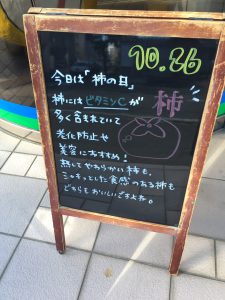 10.26
今日は「柿の日」
柿
柿にはビタミンCが
多く含まれていて
老化防止や
美容におすすめ!
熟してやわらかい柿も、
シャキッとした食感のある柿も
どちらもおいしいですよね。